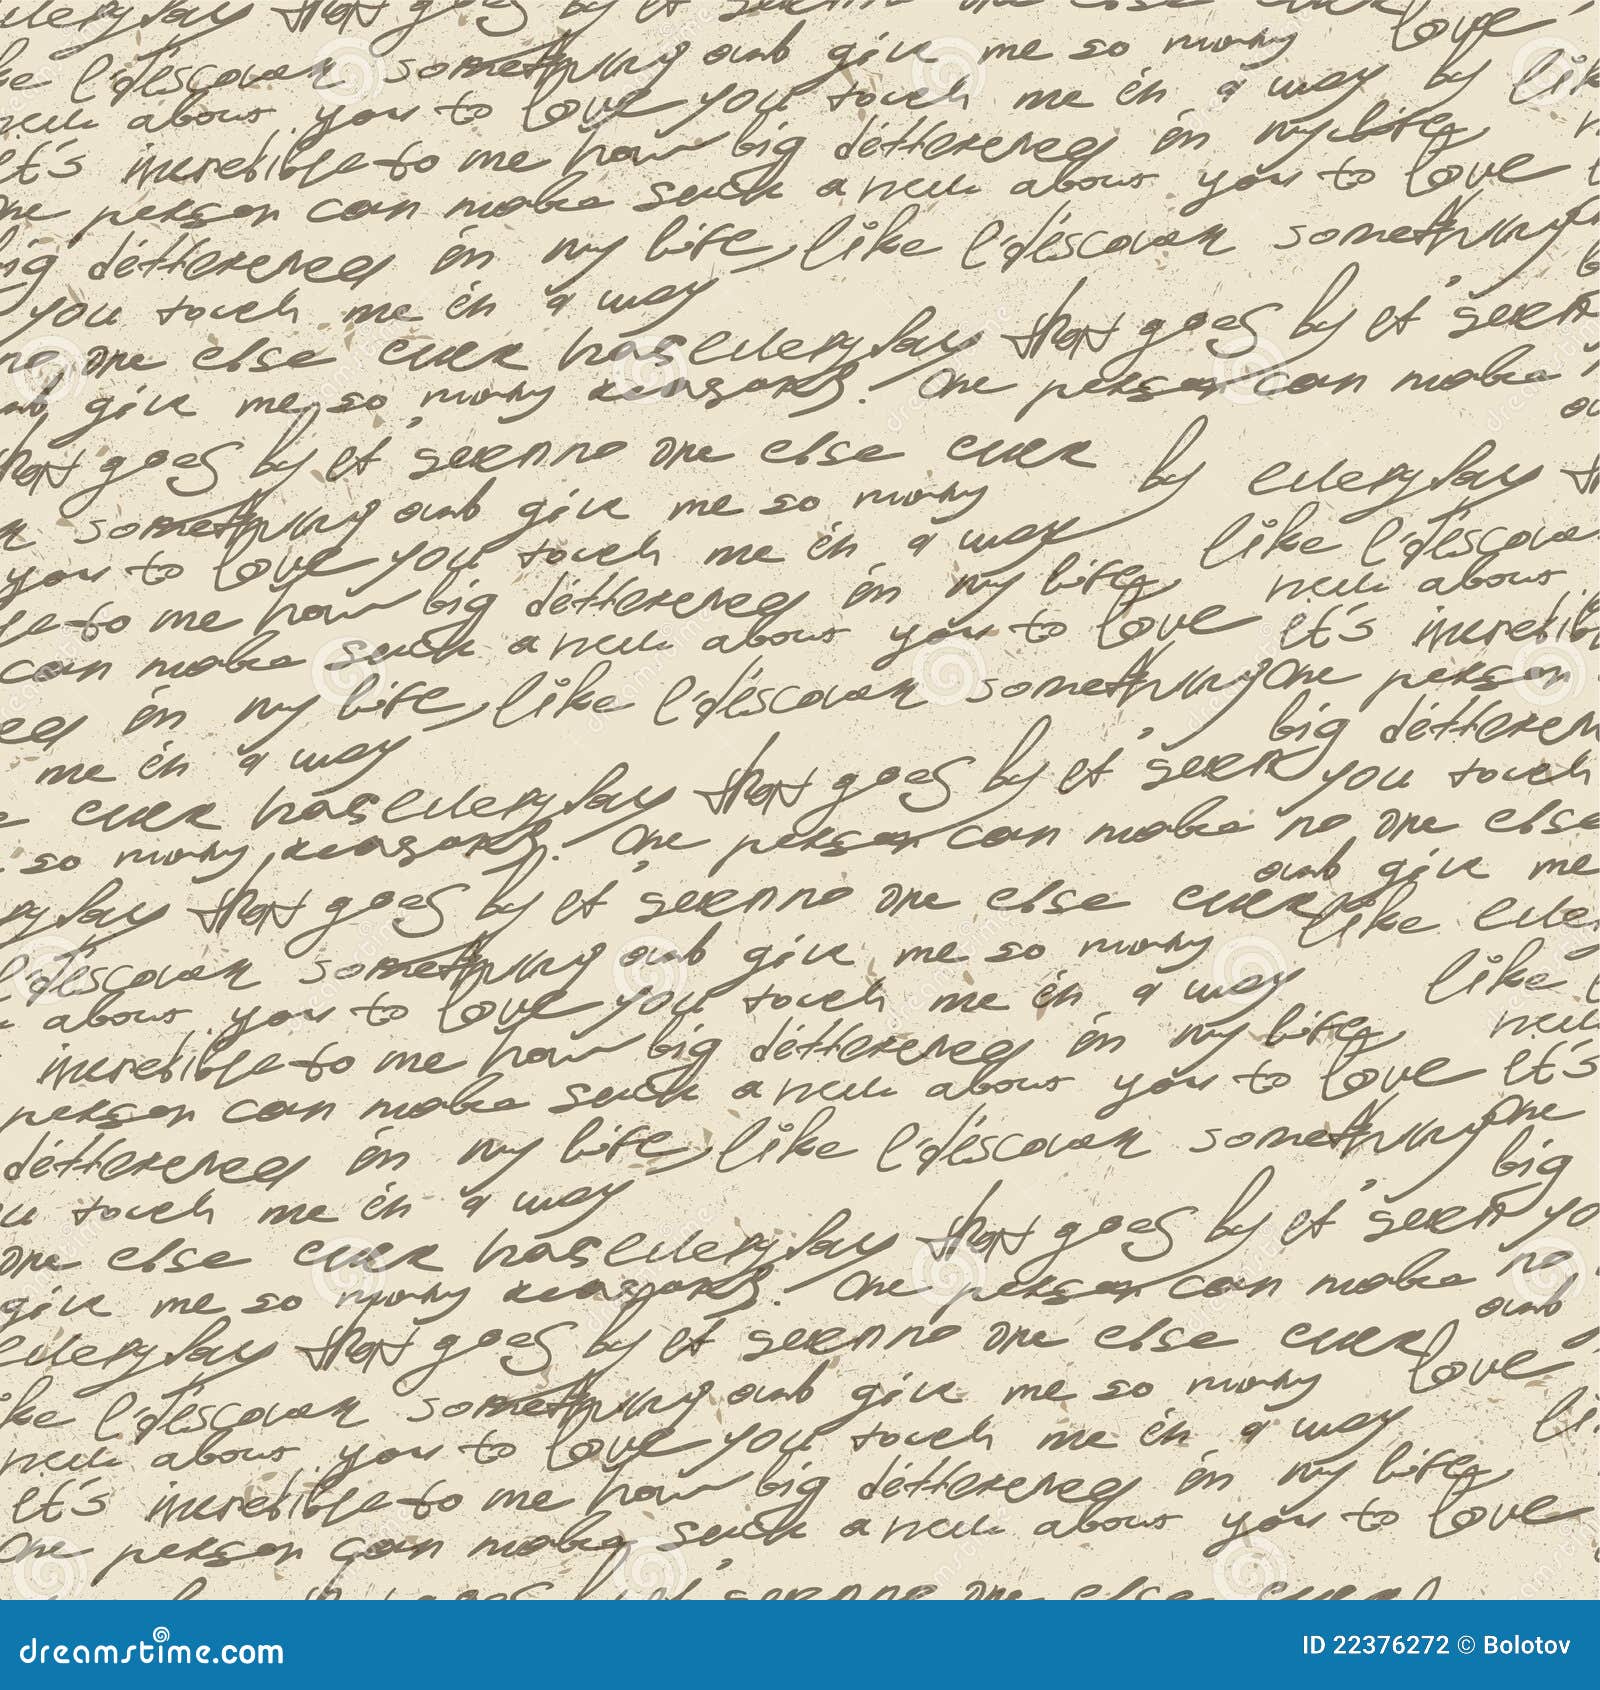 everyday that goes by it seem no one else ever
like I discover something and give me so many love
new about you to love you touch me in a way by like
it's incredible to me how big difference in my life
One person can make such a new about you to love
big difference in my life, like I discover something
you touch me in a way
no one else ever has everyday that goes by it seem
and give me so many reasons. One person can make
that goes by it seem no one else ever by everyday
something and give me so many like I discover
you to love you touch me in a way new about
to me how big difference in my life it's incredible
can make such a new about you to love One person
in my life, like I discover something big
me in a way you touch
ever has everyday that goes by it seem no one else
so many reasons. One person can make and give me
everyday that goes by it seem no one else ever like
I discover something and give me so many like
about you to love you touch me in a way new
incredible to me how big difference in my life it's
person can make such a new about you to love One
difference in my life, like I discover something big
touch me in a way you
one else ever has everyday that goes by it seem no
give me so many reasons. One person can make and
everyday that goes by it seem no one else ever love
like I discover something and give me so many
new about you to love you touch me in a way
it's incredible to me how big difference in my life
One person can make such a new about you to love
dreamstime.com
ID 22376272 © Bolotov